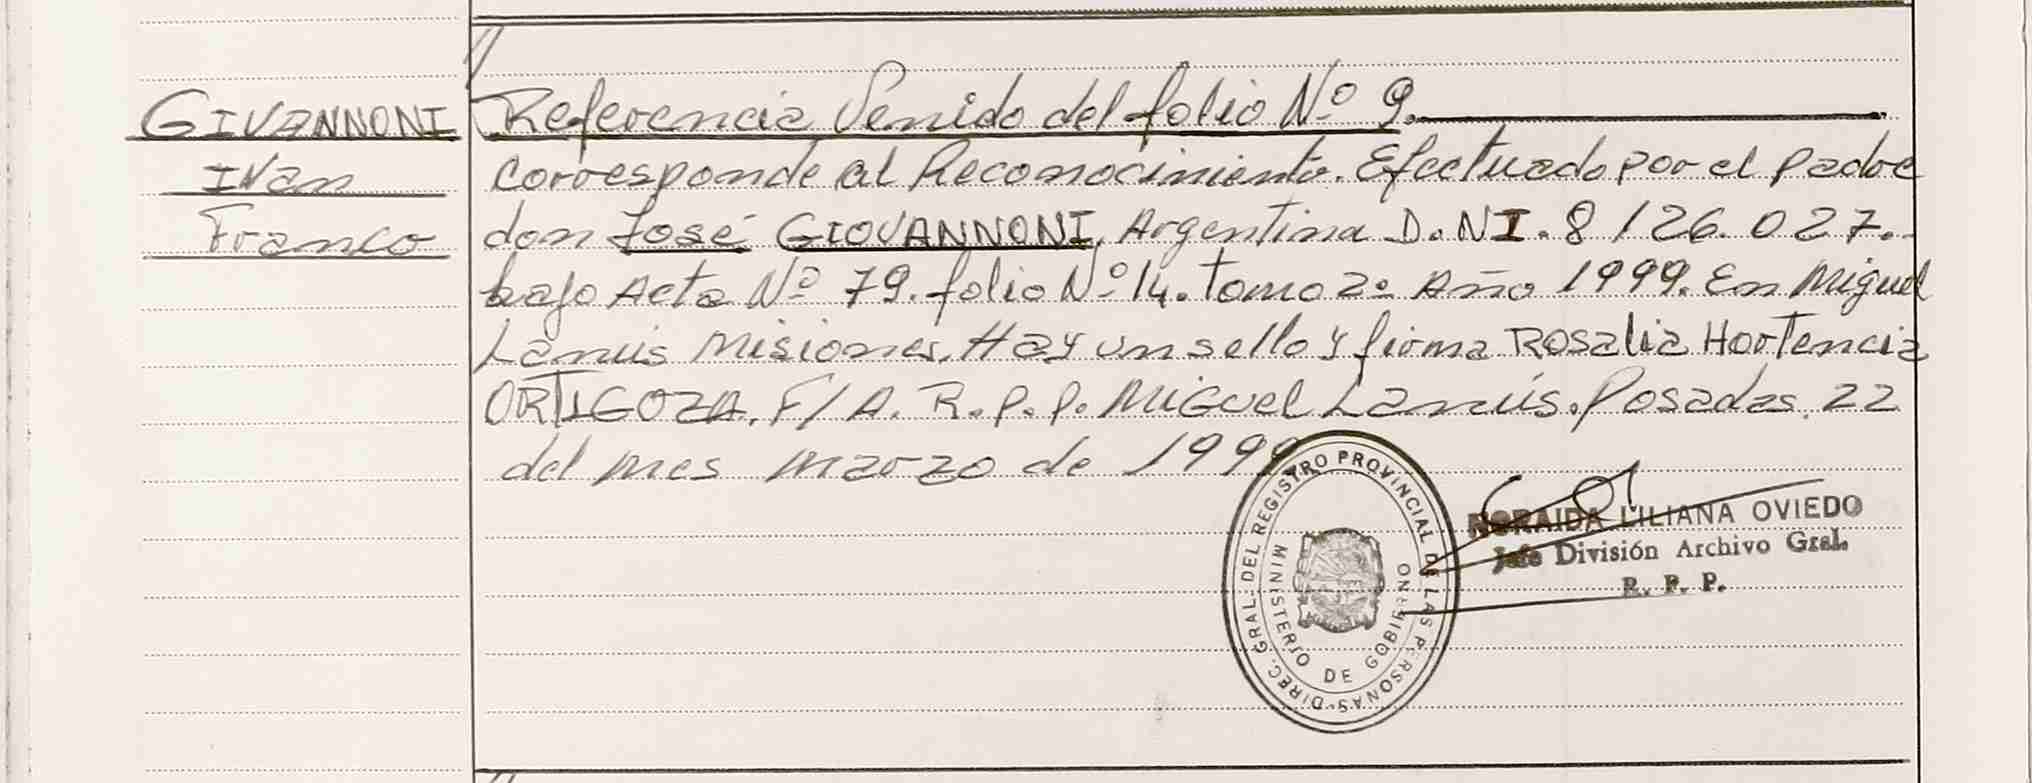 GIVANNONI
Ivan
Franco
Referencia Venido del folio Nº 9.
corresponde al Reconocimiento. Efectuado por el padre
don José GIOVANNONI, Argentina D.NI. 8126.027.
bajo Acta Nº 79. folio Nº 14. tomo 2º Año 1999. En Miguel
Lanús Misiones. Hay un sello y firma Rosalia Hortencia
ORTIGOZA. F/A. R.P.P. Miguel Lanús. Posadas. 22
del mes marzo de 1999
DIREC. GRAL. DEL REGISTRO PROVINCIAL DE LAS PERSONAS
MINISTERIO DE GOBIERNO
NORAIDA LILIANA OVIEDO
Jefe División Archivo Gral.
R. P. P.